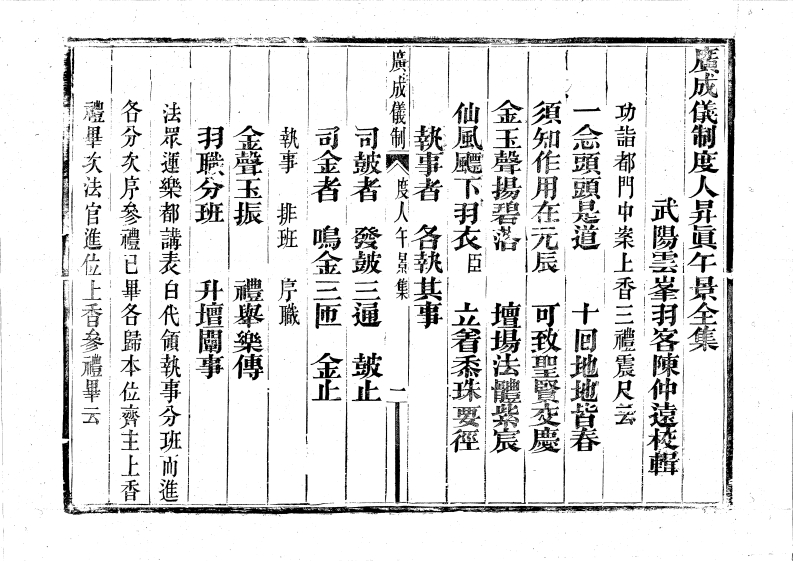 廣成儀制度人昇眞午景全集
武陽雲峯羽客陳仲遠校輯
功詣都門中案上香三禮震尺云
一念頭頭是道　十回地地皆春
須知作用在元辰　可致聖賢交慶
金玉聲揚碧落　壇場法體紫宸
仙風飄下羽衣臣　立着黍珠要徑
執事者　各執其事
廣成儀制　度人午景集　二
司皷者　發皷三通　皷止
司金者　鳴金三匝　金止
執事　排班　序職
金聲玉振　禮舉樂傳
羽職分班　升壇闡事
法眾運樂都講表白代領執事分班而進
各分次序參禮已畢各歸本位齊主上香
禮畢次法官進位上香參禮畢云